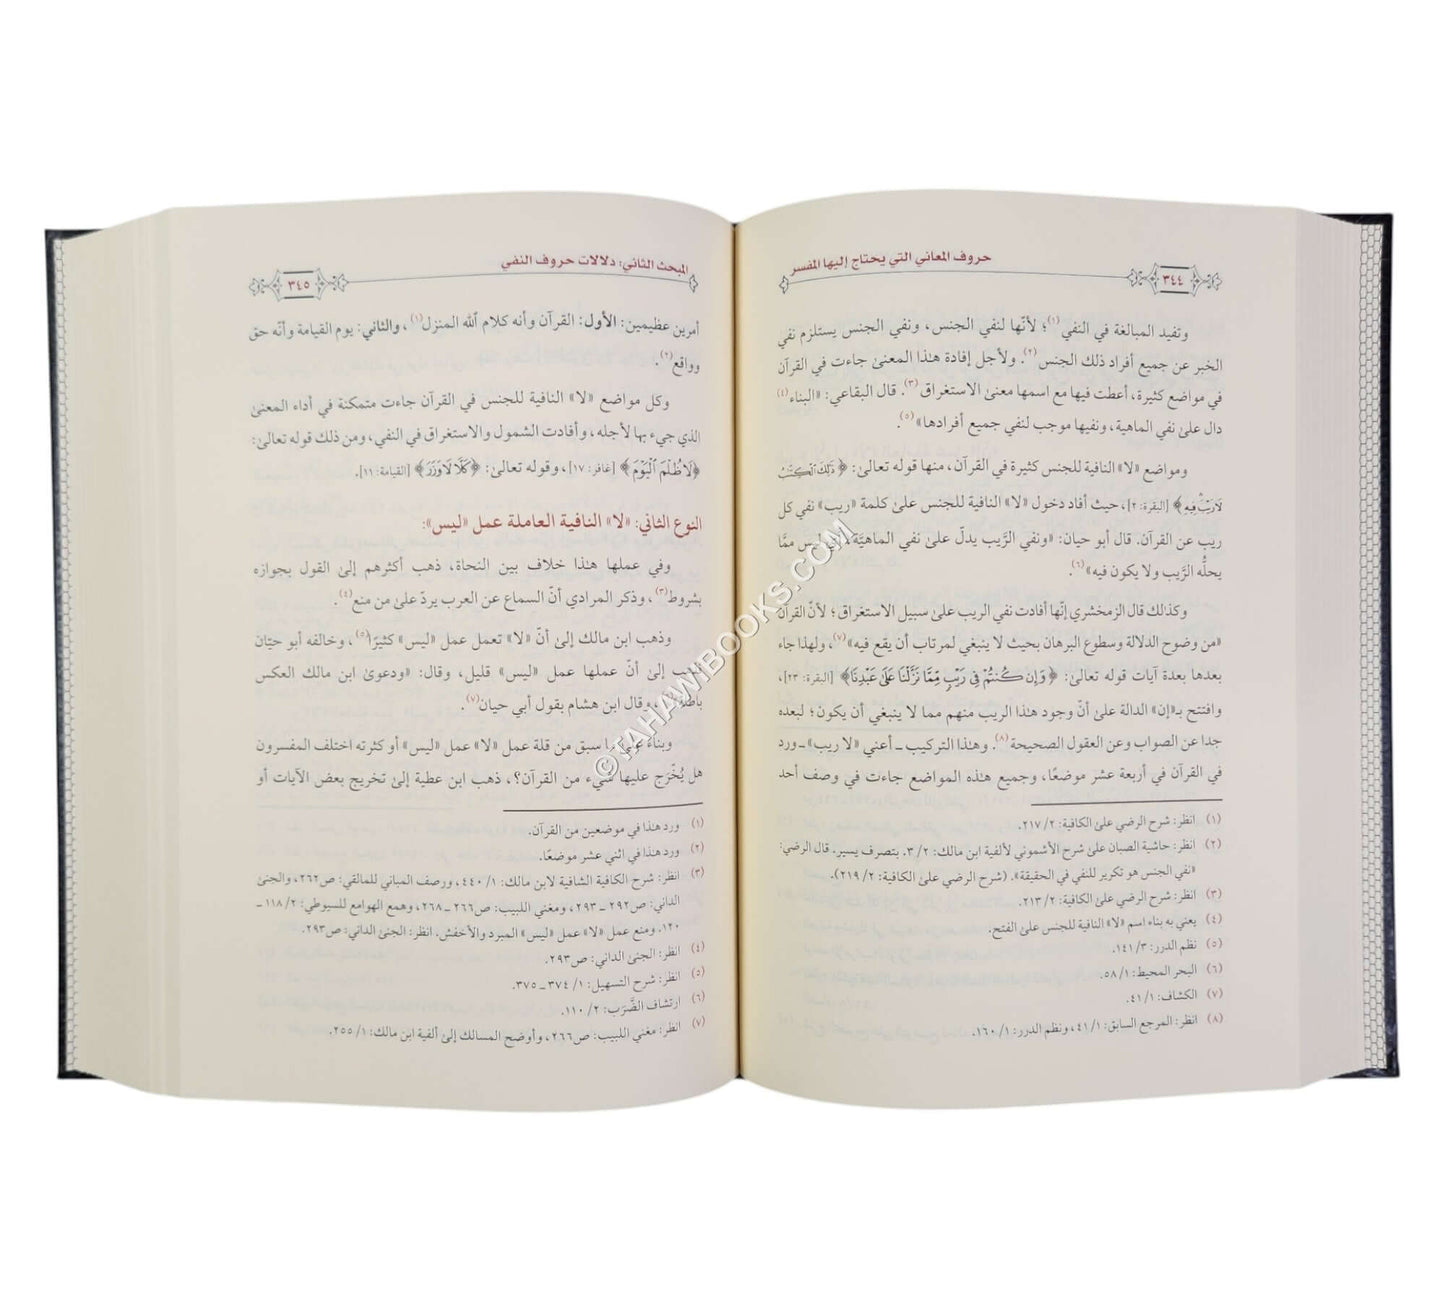 حروف المعاني التي يحتاج إليها المفسر
٣٤٤
وتفيد المبالغة في النفي(١)؛ لأنّها لنفي الجنس، ونفي الجنس يستلزم نفي
الخبر عن جميع أفراد ذلك الجنس(٢). ولأجل إفادة هذا المعنىٰ جاءت في القرآن
في مواضع كثيرة، أعطت فيها مع اسمها معنىٰ الاستغراق(٣). قال البقاعي: «البناء(٤)
دال علىٰ نفي الماهية، ونفيها موجب لنفي جميع أفرادها»(٥).
ومواضع «لا» النافية للجنس كثيرة في القرآن، منها قوله تعالىٰ: ﴿ذَٰلِكَ ٱلْكِتَٰبُ
لَا رَيْبَۛ فِيهِ﴾ [البقرة: ٢]، حيث أفاد دخول «لا» النافية للجنس علىٰ كلمة «ريب» نفي كل
ريب عن القرآن. قال أبو حيان: «ونفي الرَّيب يدلّ علىٰ نفي الماهيَّة، أي ليس ممَّا
يحلُّه الرَّيب ولا يكون فيه»(٦).
وكذلك قال الزمخشري إنّها أفادت نفي الريب علىٰ سبيل الاستغراق؛ لأنّ القرآن
«من وضوح الدلالة وسطوع البرهان بحيث لا ينبغي لمرتاب أن يقع فيه»(٧)، ولهذا جاء
بعدها بعدة آيات قوله تعالىٰ: ﴿وَإِن كُنتُمْ فِى رَيْبٍ مِّمَّا نَزَّلْنَا عَلَىٰ عَبْدِنَا﴾ [البقرة: ٢٣]،
وافتتح بـ«إن» الدالة علىٰ أنّ وجود هذا الريب منهم مما لا ينبغي أن يكون؛ لبعده
جدا عن الصواب وعن العقول الصحيحة(٨). وهذا التركيب ـ أعني «لا ريب» ـ ورد
في القرآن في أربعة عشر موضعًا، وجميع هذه المواضع جاءت في وصف أحد
(١) انظر: شرح الرضي علىٰ الكافية: ٢/ ٢١٧.
(٢) انظر: حاشية الصبان علىٰ شرح الأشموني لألفية ابن مالك: ٢/ ٣. بتصرف يسير. قال الرضي:
«نفي الجنس هو تكرير للنفي في الحقيقة». (شرح الرضي علىٰ الكافية: ٢/ ٢١٩).
(٣) انظر: شرح الرضي علىٰ الكافية: ٢/ ٢١٣.
(٤) يعني به بناء اسم «لا» النافية للجنس علىٰ الفتح.
(٥) نظم الدرر: ٣/ ١٤١.
(٦) البحر المحيط: ١/ ٥٨.
(٧) الكشاف: ١/ ٤١.
(٨) انظر: المرجع السابق: ١/ ٤١، ونظم الدرر: ١/ ١٦٠.
المبحث الثاني: دلالات حروف النفي
٣٤٥
أمرين عظيمين: الأول: القرآن وأنه كلام الله المنزل(١)، والثاني: يوم القيامة وأنّه حق
وواقع(٢).
وكل مواضع «لا» النافية للجنس في القرآن جاءت متمكنة في أداء المعنىٰ
الذي جيء بها لأجله، وأفادت الشمول والاستغراق في النفي، ومن ذلك قوله تعالىٰ:
﴿لَا ظُلْمَ ٱلْيَوْمَ﴾ [غافر: ١٧]، وقوله تعالىٰ: ﴿كَلَّا لَا وَزَرَ﴾ [القيامة: ١١].
النوع الثاني: «لا» النافية العاملة عمل «ليس»:
وفي عملها هذا خلاف بين النحاة، ذهب أكثرهم إلىٰ القول بجوازه
بشروط(٣)، وذكر المرادي أنّ السماع عن العرب يردّ علىٰ من منع(٤).
وذهب ابن مالك إلىٰ أنّ «لا» تعمل عمل «ليس» كثيرًا(٥)، وخالفه أبو حيّان
إلىٰ أنّ عملها عمل «ليس» قليل، وقال: «ودعوىٰ ابن مالك العكس
، وقال ابن هشام بقول أبي حيان(٧).
وبناءً علىٰ ما سبق من قلة عمل «لا» عمل «ليس» أو كثرته اختلف المفسرون
هل يُخْرّج عليها شيء من القرآن؟، ذهب ابن عطية إلىٰ تخريج بعض الآيات أو
(١) ورد هذا في موضعين من القرآن.
(٢) ورد هذا في اثني عشر موضعًا.
(٣) انظر: شرح الكافية الشافية لابن مالك: ١/ ٤٤٠، ورصف المباني للمالقي: ص٢٦٢، والجنىٰ
الداني: ص٢٩٢ ـ ٢٩٣، ومغني اللبيب: ص٢٦٦ ـ ٢٦٨، وهمع الهوامع للسيوطي: ٢/ ١١٨ ـ
١٢٠. ومنع عمل «لا» عمل «ليس» المبرد والأخفش، انظر: الجنىٰ الداني: ص٢٩٣.
(٤) انظر: الجنىٰ الداني: ص٢٩٣.
(٥) انظر: شرح التسهيل: ١/ ٣٧٤ ـ ٣٧٥.
(٦) ارتشاف الضَّرَب: ٢/ ١١٠.
(٧) انظر: مغني اللبيب: ص٢٦٦، وأوضح المسالك إلىٰ ألفية ابن مالك: ١/ ٢٥٥.
©TAHAWIBOOKS.COM